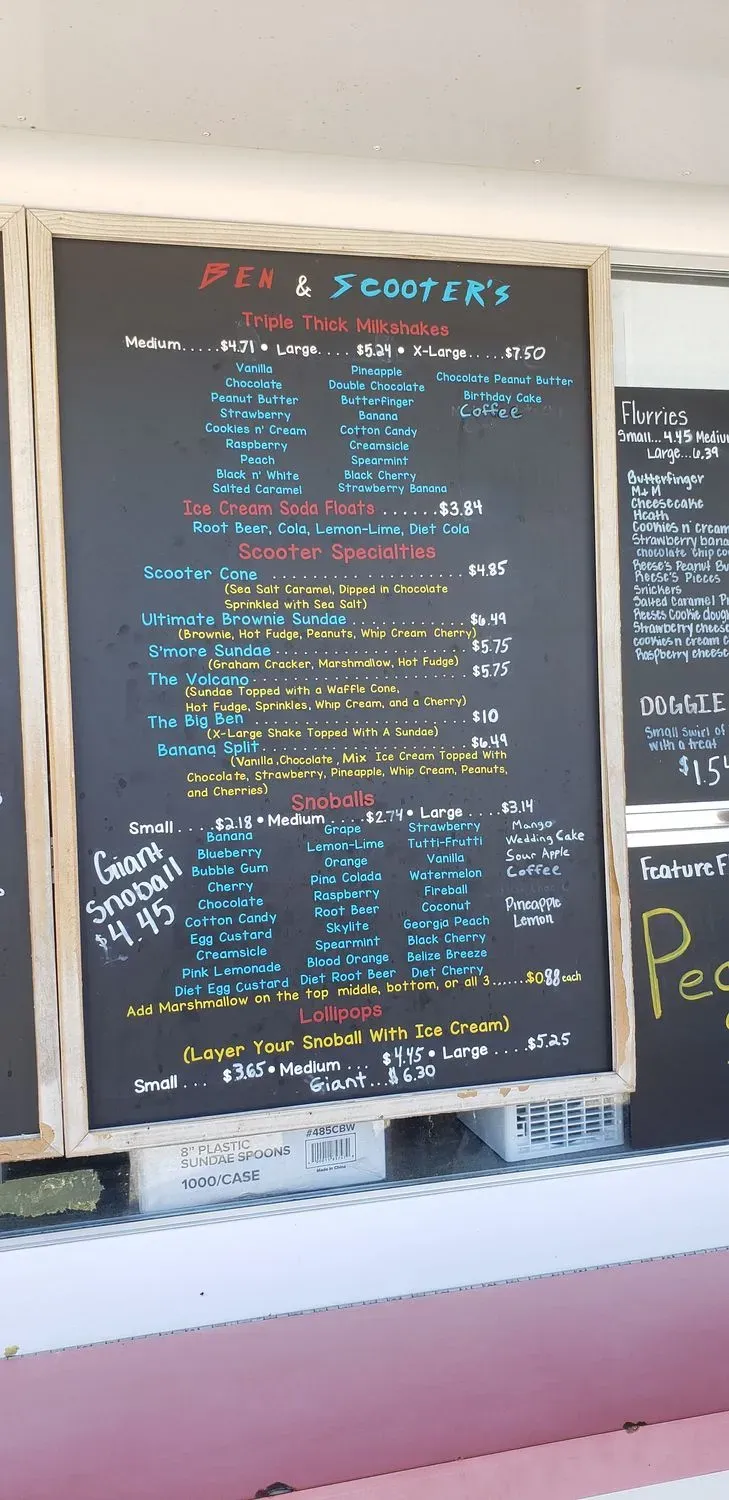 BEN & SCOOTER'S
Triple Thick Milkshakes
Medium.....$4.71 • Large.... $5.24 • X-Large.....$7.50
Vanilla Pineapple Chocolate Peanut Butter
Chocolate Double Chocolate Birthday Cake
Peanut Butter Butterfinger Coffee
Strawberry Banana
Cookies n' Cream Cotton Candy
Raspberry Creamsicle
Peach Spearmint
Black n' White Black Cherry
Salted Caramel Strawberry Banana
Ice Cream Soda Floats ......$3.84
Root Beer, Cola, Lemon-Lime, Diet Cola
Scooter Specialties
Scooter Cone ........................ $4.85
(Sea Salt Caramel, Dipped in Chocolate
Sprinkled with Sea Salt)
Ultimate Brownie Sundae ............... $6.49
(Brownie, Hot Fudge, Peanuts, Whip Cream Cherry)
S'more Sundae ........................ $5.75
(Graham Cracker, Marshmallow, Hot Fudge)
The Volcano ........................ $5.75
(Sundae Topped with a Waffle Cone,
Hot Fudge, Sprinkles, Whip Cream, and a Cherry)
The Big Ben ........................ $10
(X-Large Shake Topped With A Sundae)
Banana Split ........................ $6.49
(Vanilla, Chocolate, Mix Ice Cream Topped With
Chocolate, Strawberry, Pineapple, Whip Cream, Peanuts,
and Cherries)
Snoballs
Small ....$2.18 • Medium ....$2.74 • Large ....$3.14
Giant
Snoball
$4.45
Banana Grape Strawberry Mango
Blueberry Lemon-Lime Tutti-Frutti Wedding Cake
Bubble Gum Orange Vanilla Sour Apple
Cherry Pina Colada Watermelon Coffee
Chocolate Raspberry Fireball
Cotton Candy Root Beer Coconut Pineapple
Egg Custard Skylite Georgia Peach Lemon
Creamsicle Spearmint Black Cherry
Pink Lemonade Blood Orange Belize Breeze
Diet Egg Custard Diet Root Beer Diet Cherry
Add Marshmallow on the top middle, bottom, or all 3......$0.88 each
Lollipops
(Layer Your Snoball With Ice Cream)
Small ... $3.65 • Medium ... $4.45 • Large ....$5.25
Giant...$6.30
Flurries
Small... 4.45 Mediu
Large...6.39
Butterfinger
M+M
Cheesecake
Heath
Cookies n' cream
Strawberry bana
chocolate chip co
Reese's Peanut Bu
Reese's Pieces
Snickers
Salted Caramel P
Reeses Cookie doug
Strawberry cheese
cookies n cream c
Raspberry cheese
DOGGIE
Small swirl of
with a treat
$1.5
Feature F
Pe
8" PLASTIC
SUNDAE SPOONS
1000/CASE
#485CBW
Made in China